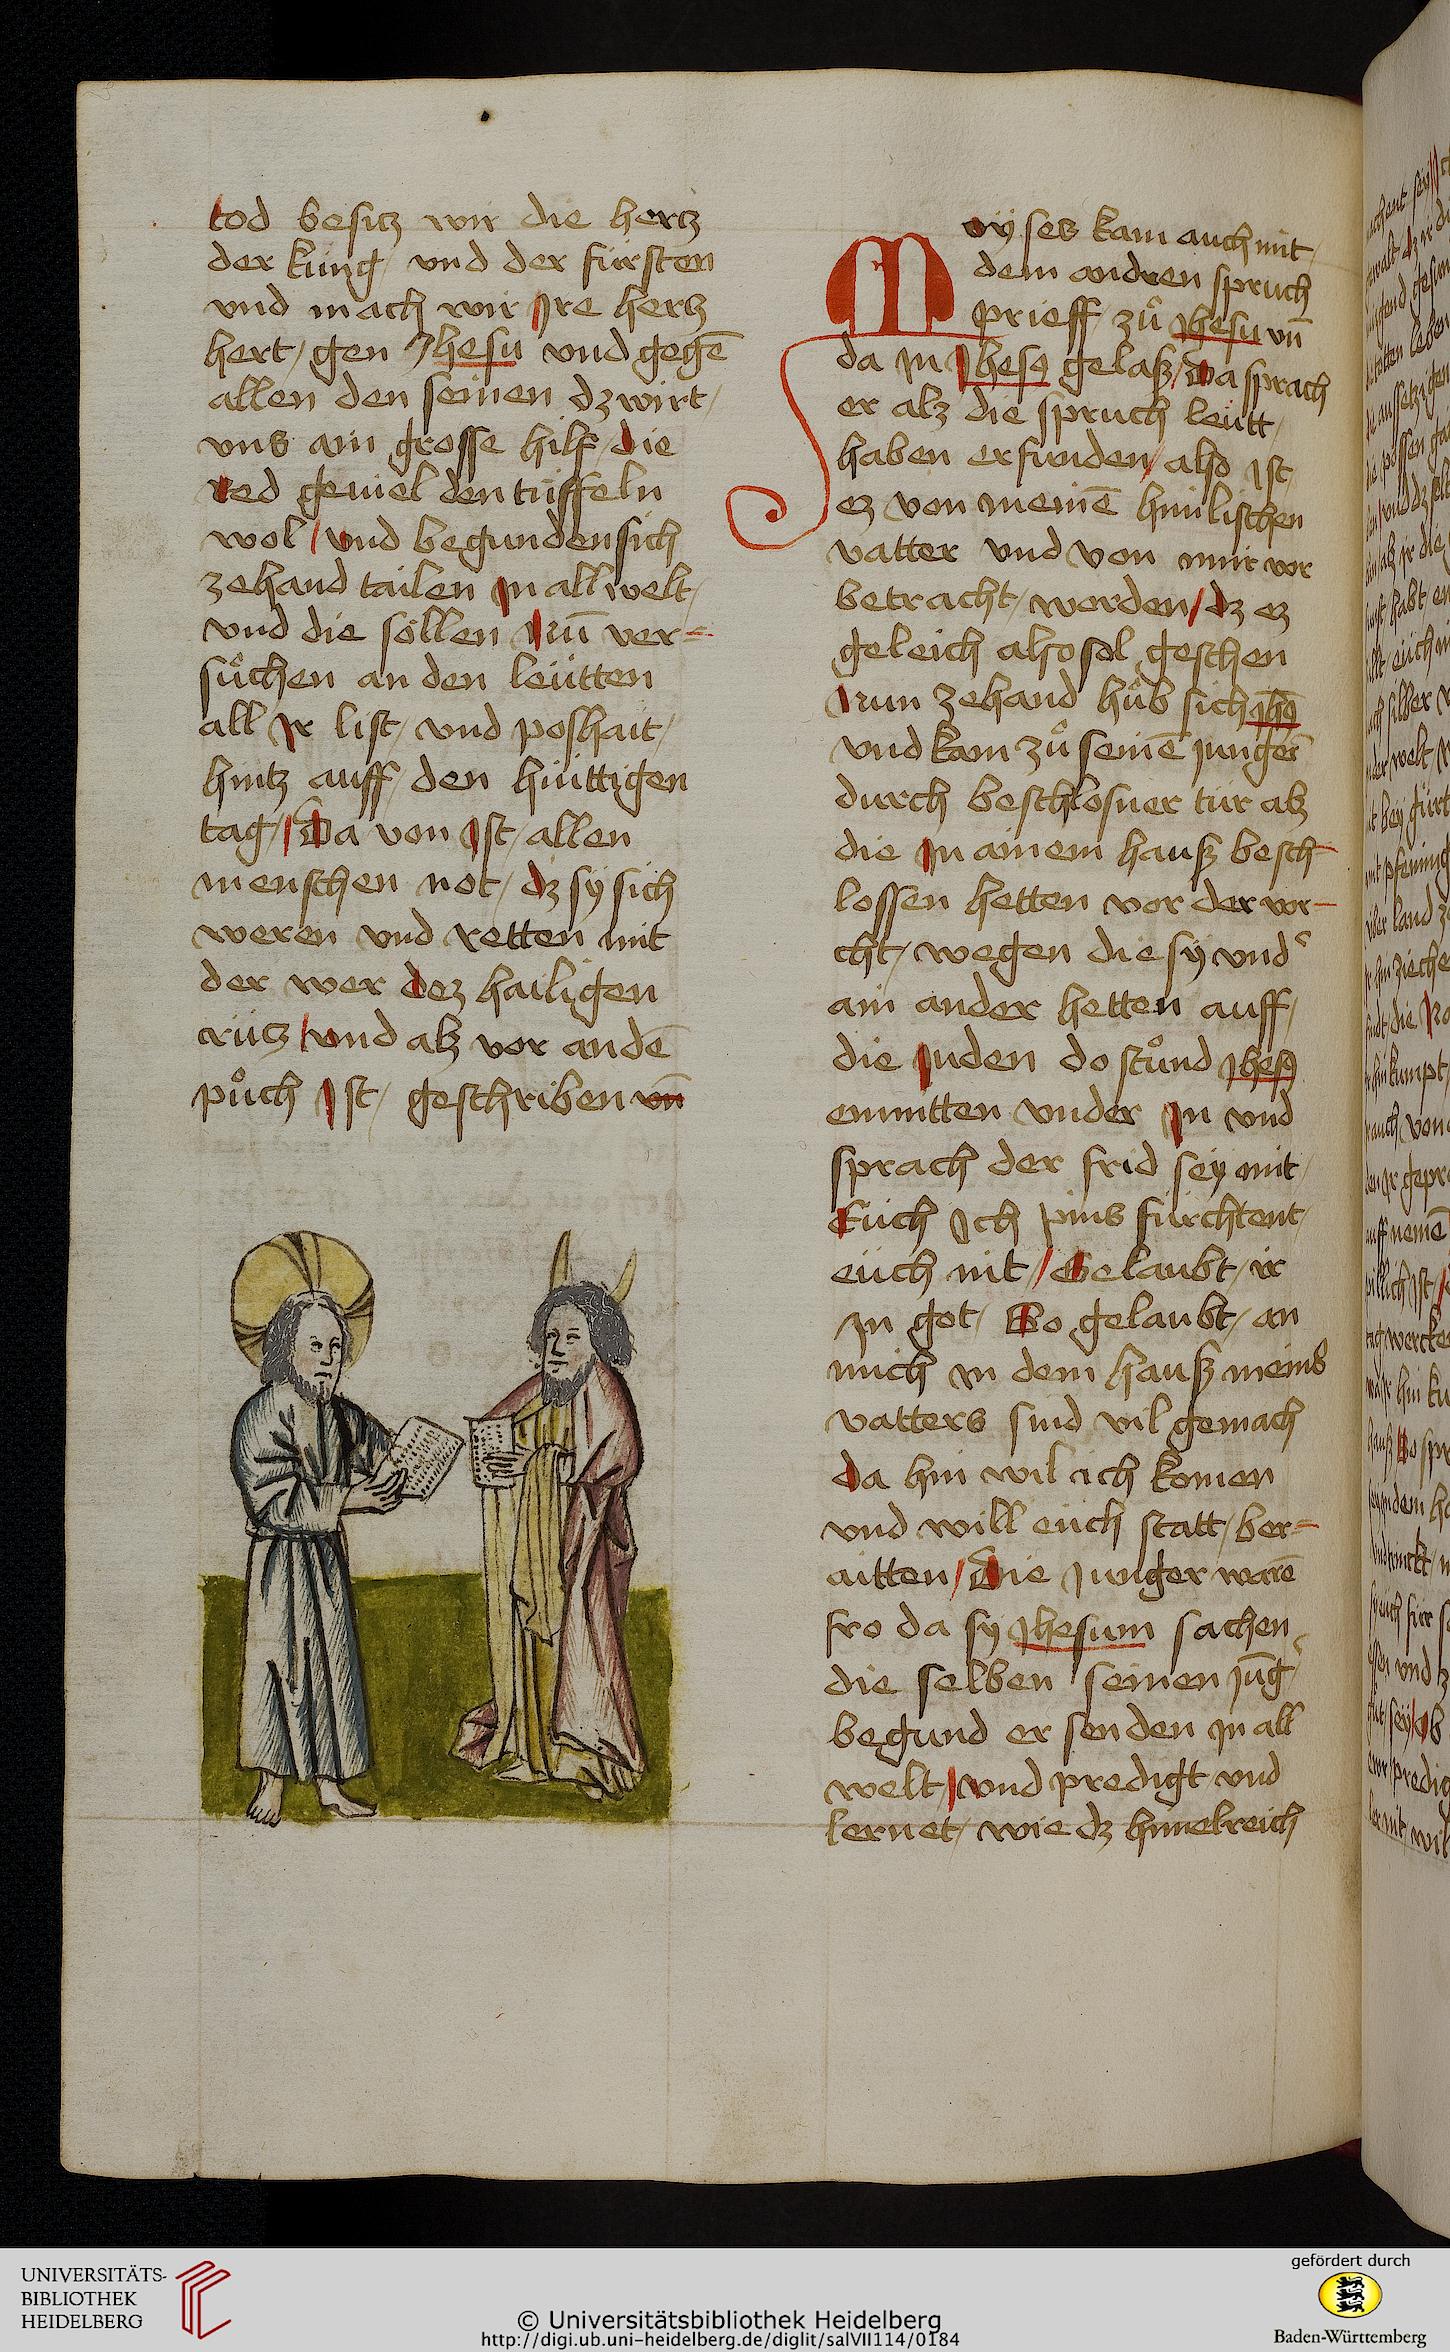 tod besitz wir die hertz
der küng / und der fürsten
und mach wir Ire hertz
hert / gen Jhesu und gegē
allen den seinen dz wirt /
uns ain grosse hilf / die
red geviel den tüffeln
wol / und begunden sich
zehand tailen In all welt /
und die söllen Nun̄ ver=
sůchen an den leütten
all Ir list / und poshait /
hintz auff / den hüttigen
tag / Da von Ist / allen
menschen not / dz sy sich
weren und retten mit
der wer dez hailigen
crütz / und alz vor andē
půch Ist / geschriben vn̄
Moÿses kam auch mit /
dem andren spruch
prieff / zů Jhesu un̄
da In Jhesꝯ gelasz / Da sprach
er alz die spruch leütt /
haben erfunden / also Ist /
ez von meinē himlischen
vatter und von mir vor
betracht / worden / dz ez
geleich also sol geschen
Nun zehand hůb sich Jhꝯ
und kam zů seinē Jungern̄
durch beschlosner tür alz
die In ainem hausz besch=
lossen hetten vor der vor=
cht / wegen die sÿ und'
ain ander hetten auff /
die Juden do stůnd Jhesꝯ
enmitten under In und
sprach der frid seÿ mit /
Eüch Ich pins fürchtent /
eüch nit / Gelaubt / ir
In got / So gelaubt / an
mich In dem hausz meins
vatters sind vil gemach
da hin wil ich komen
und will eüch statt / ber=
aitten / Die Junger warē
fro da sy Jhesum sachen
die selben seinen Jūg'
begund er senden In all
welt / und predigt und
lernet / wie dz himelreich
UNIVERSITÄTS-
BIBLIOTHEK
HEIDELBERG
© Universitätsbibliothek Heidelberg
http://digi.ub.uni-heidelberg.de/diglit/salVII114/0184
gefördert durch
Baden-Württemberg